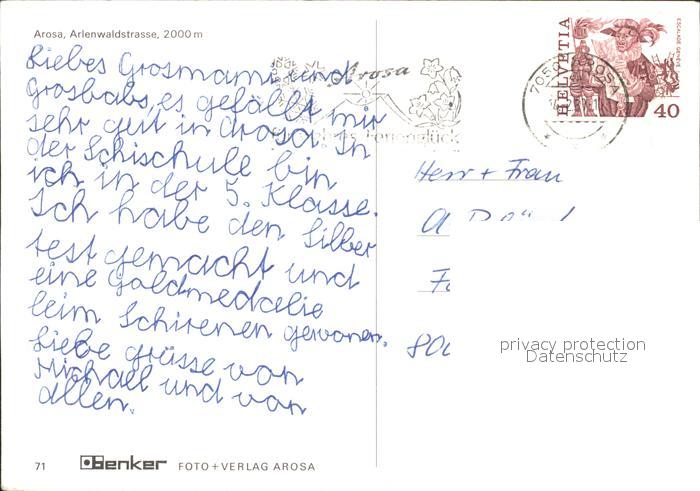 Arosa, Arlenwaldstrasse, 2000 m
Liebes Grosmami und
Grosbabs, es gefällt mir
sehr gut in Arosa. In
der Schischule bin
ich in der 5. Klasse.
Ich habe den Silber
test gemacht und
eine Goldmedalie
beim Schirenen gewonen.
Liebe grüsse von
Michael und von
allen.
71 Denker FOTO + VERLAG AROSA
Arosa
Ferienglück
AROSA
HELVETIA
ESCALADE GENÈVE
40
Herr + Frau
A
80
privacy protection
Datenschutz